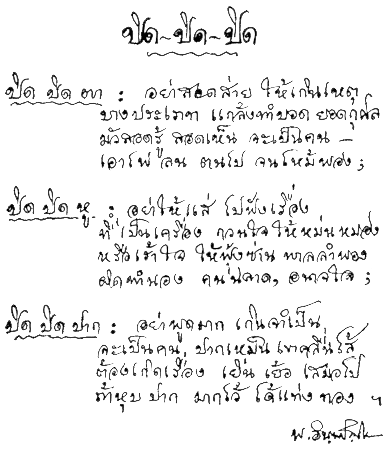 ปิด-ปิด-ปิด
ปิด ปิด ตา : อย่าสอดส่าย ให้เกินเหตุ
บางประเภท แกล้งทำบอด ยอดกุศล
มัวสอดรู้ สอดเห็น จะเป็นคน –
เอาไฟลน ตนไป จนไหม้พอง ;
ปิด ปิด หู : อย่าให้แส่ ไปฟังเรื่อง
ที่เป็นเครื่อง กวนใจ ให้หม่นหมอง
หรือเร้าใจ ให้ฟุ้งซ่าน พาลลำพอง
ผิดทำนอง คนฉลาด, อนาถใจ ;
ปิด ปิด ปาก : อย่าพูดมาก เกินจำเป็น
จะเป็นคน ปากเหม็น เขาคลื่นไส้
ต้องเกิดเรื่อง เยิ่นเย้อ เสมอไป
ถ้าหุบปาก มากไว้ ได้แท่งทอง ฯ
พ. อินฺทปญฺโญ